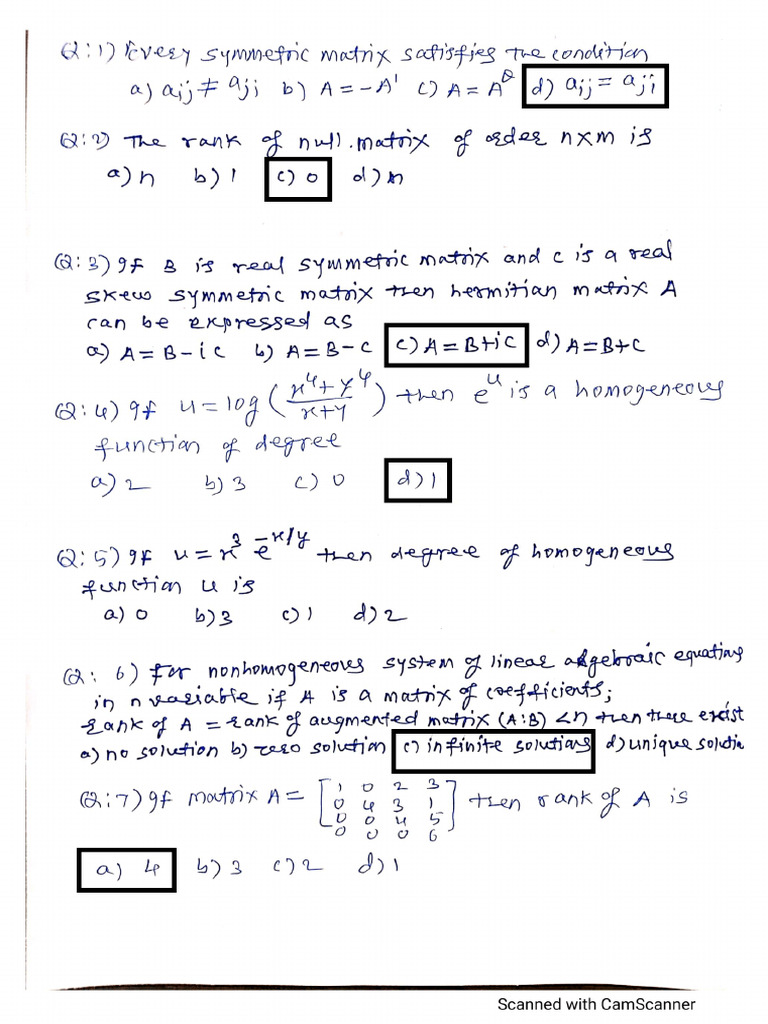 Q:1) Every symmetric matrix satisfies the condition
a) aij ≠ aji b) A = -A' c) A = A^θ d) aij = aji
Q:2) The rank of null matrix of order n×m is
a) n b) 1 c) 0 d) m
Q:3) If B is real symmetric matrix and c is a real
skew symmetric matrix then hermitian matrix A
can be expressed as
a) A = B-ic b) A = B-c c) A = B+ic d) A = B+c
Q:4) If u = log (x⁴+y⁴ / x+y) then e^u is a homogeneous
function of degree
a) 2 b) 3 c) 0 d) 1
Q:5) If u = x³ e^-x/y then degree of homogeneous
function u is
a) 0 b) 3 c) 1 d) 2
Q: 6) For nonhomogeneous system of linear algebraic equations
in n variable if A is a matrix of coefficients;
rank of A = rank of augmented matrix (A:B) <n then there exist
a) no solution b) zero solution c) infinite solutions d) unique solution
Q:7) If matrix A = [1 0 2 3
0 4 3 1
0 0 4 5
0 0 0 6] then rank of A is
a) 4 b) 3 c) 2 d) 1
Scanned with CamScanner